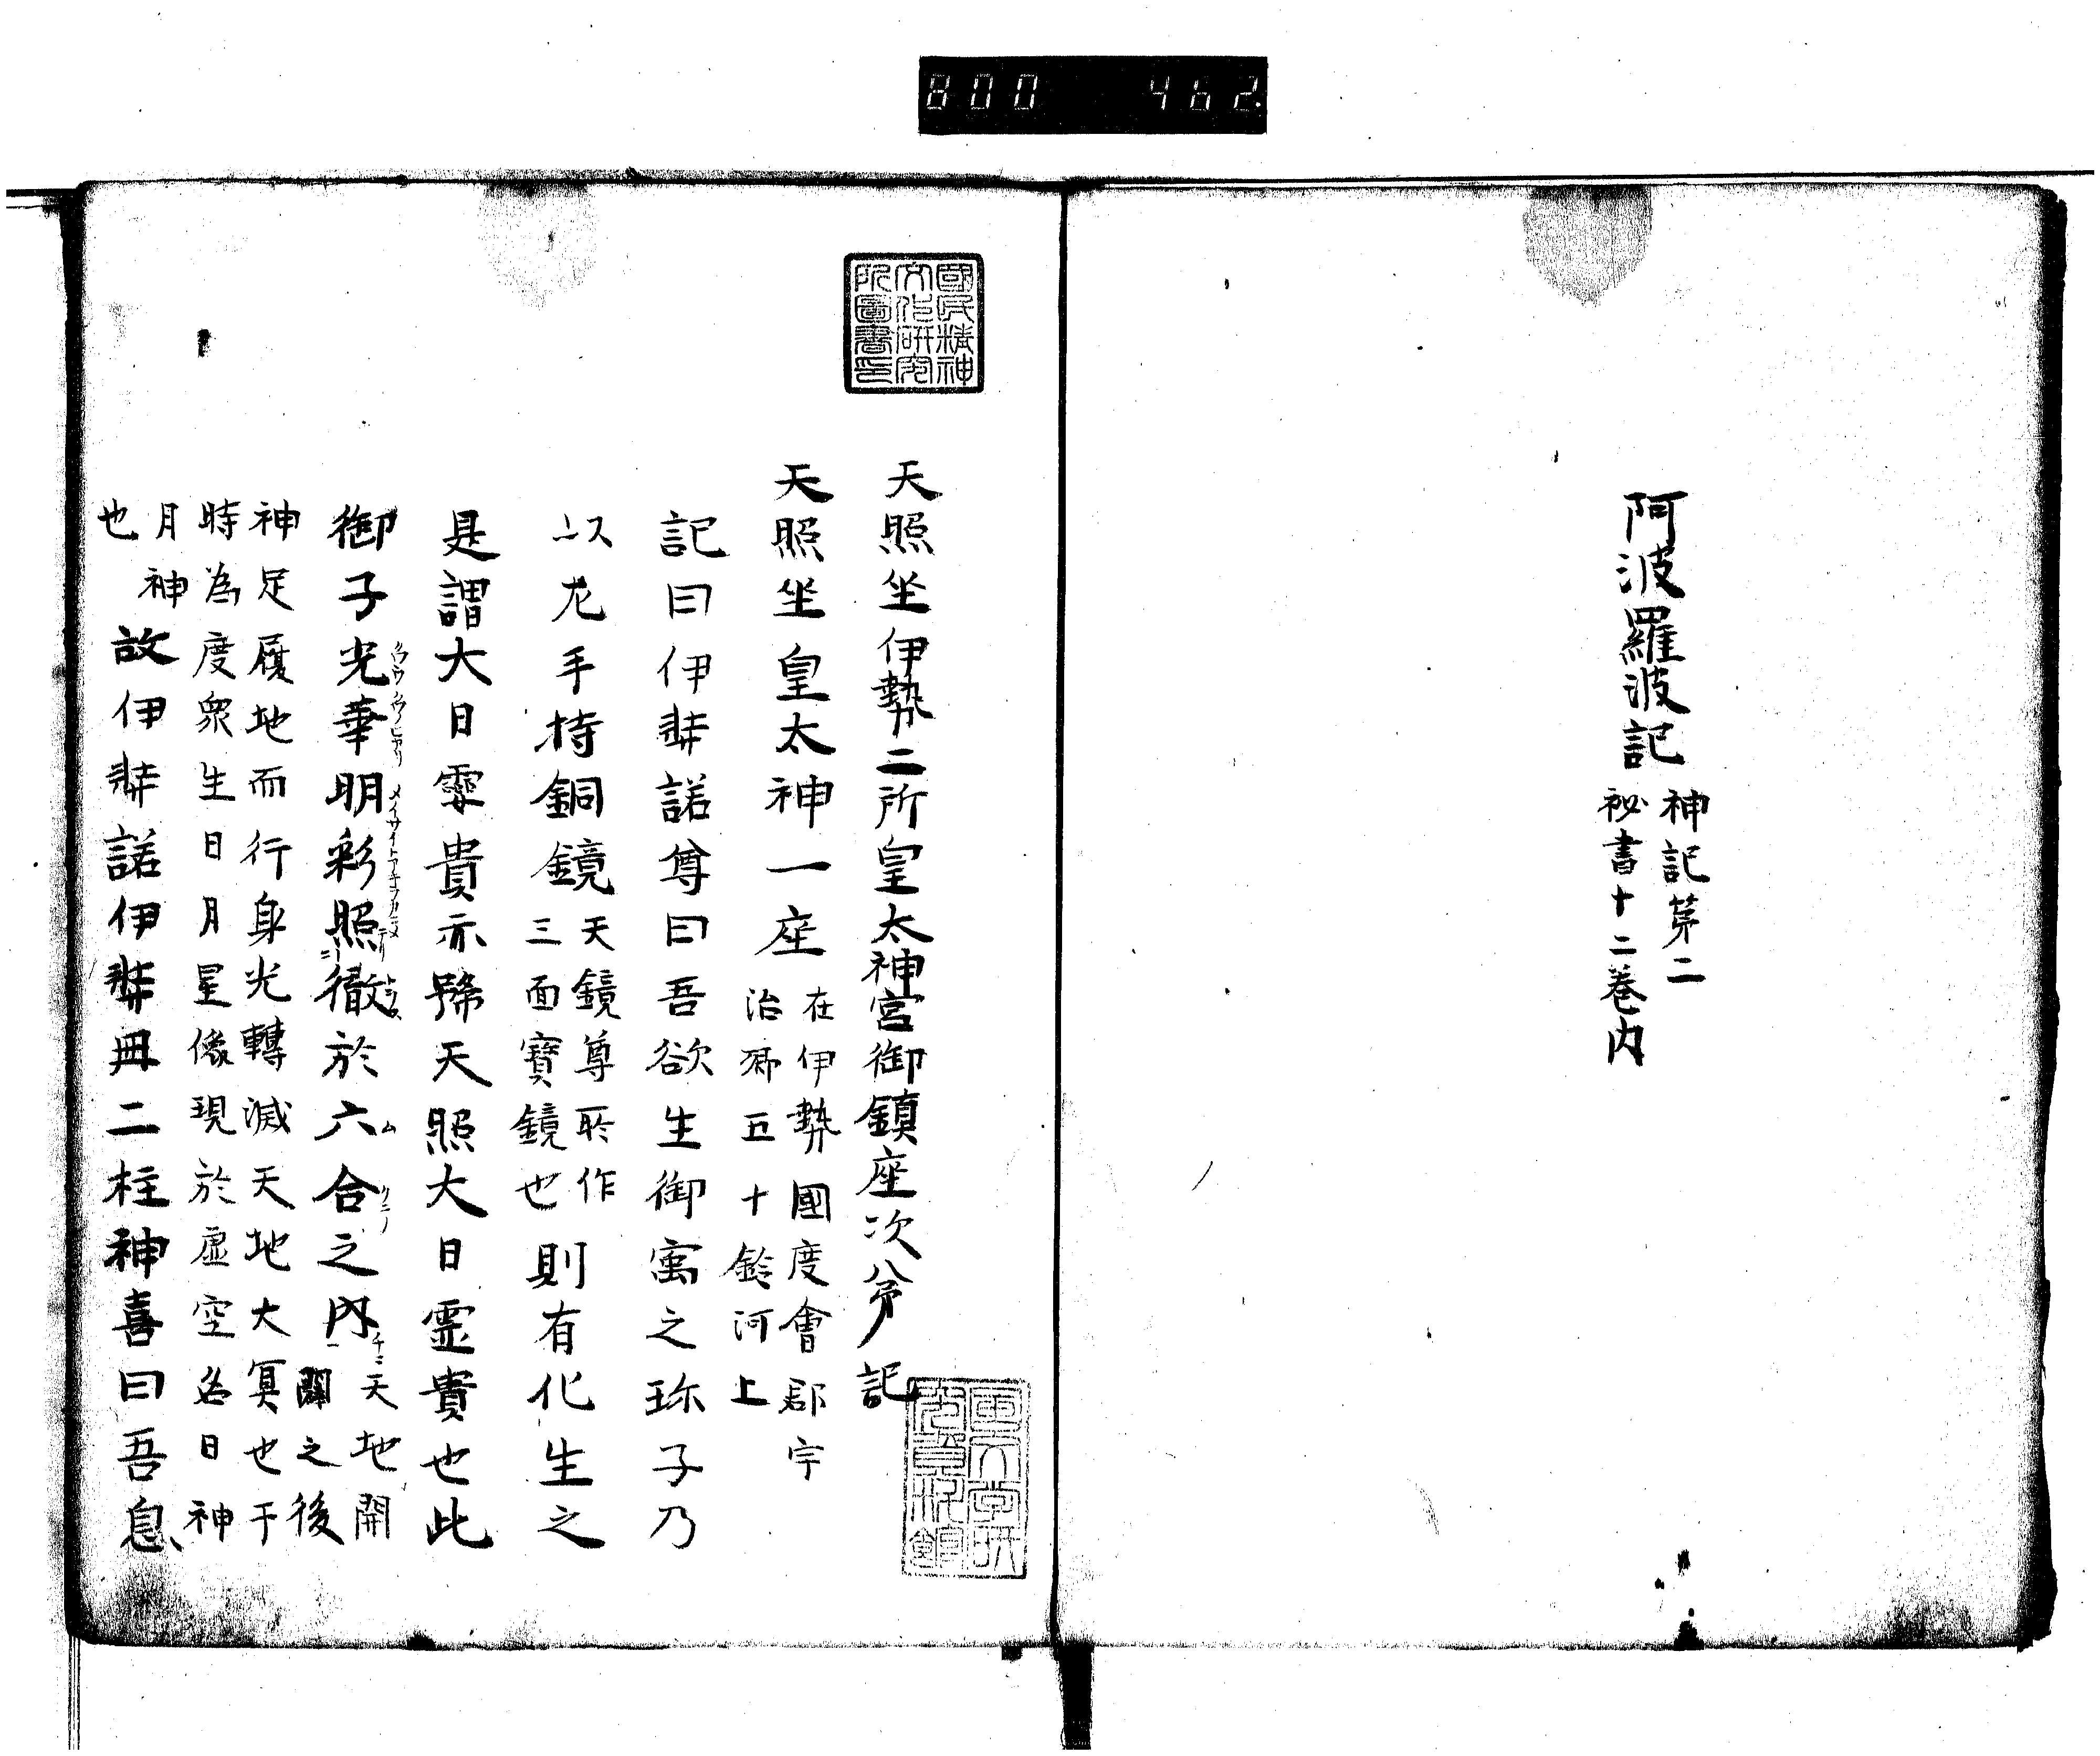 800 462
阿波羅波記 神記第二
祕書十二巻内
國民精神
文化研究
所圖書印
天照坐伊勢二所皇太神宮御鎮座次第記
天照坐皇太神一座 在伊勢國度會郡宇
治郷五十鈴河上
記曰伊弉諾尊曰吾欲生御寓之珎子乃
以左手持銅鏡 天鏡尊所作
三面寶鏡也 則有化生之
是謂大日孁貴亦號天照大日霊貴也此
御子光華明彩照徹於六合之内 天地開
闢之後
神足履地而行身光轉滅天地大冥也于
時為度衆生日月星像現於虚空名日神
月神
也 故伊弉諾伊弉冊二柱神喜曰吾息